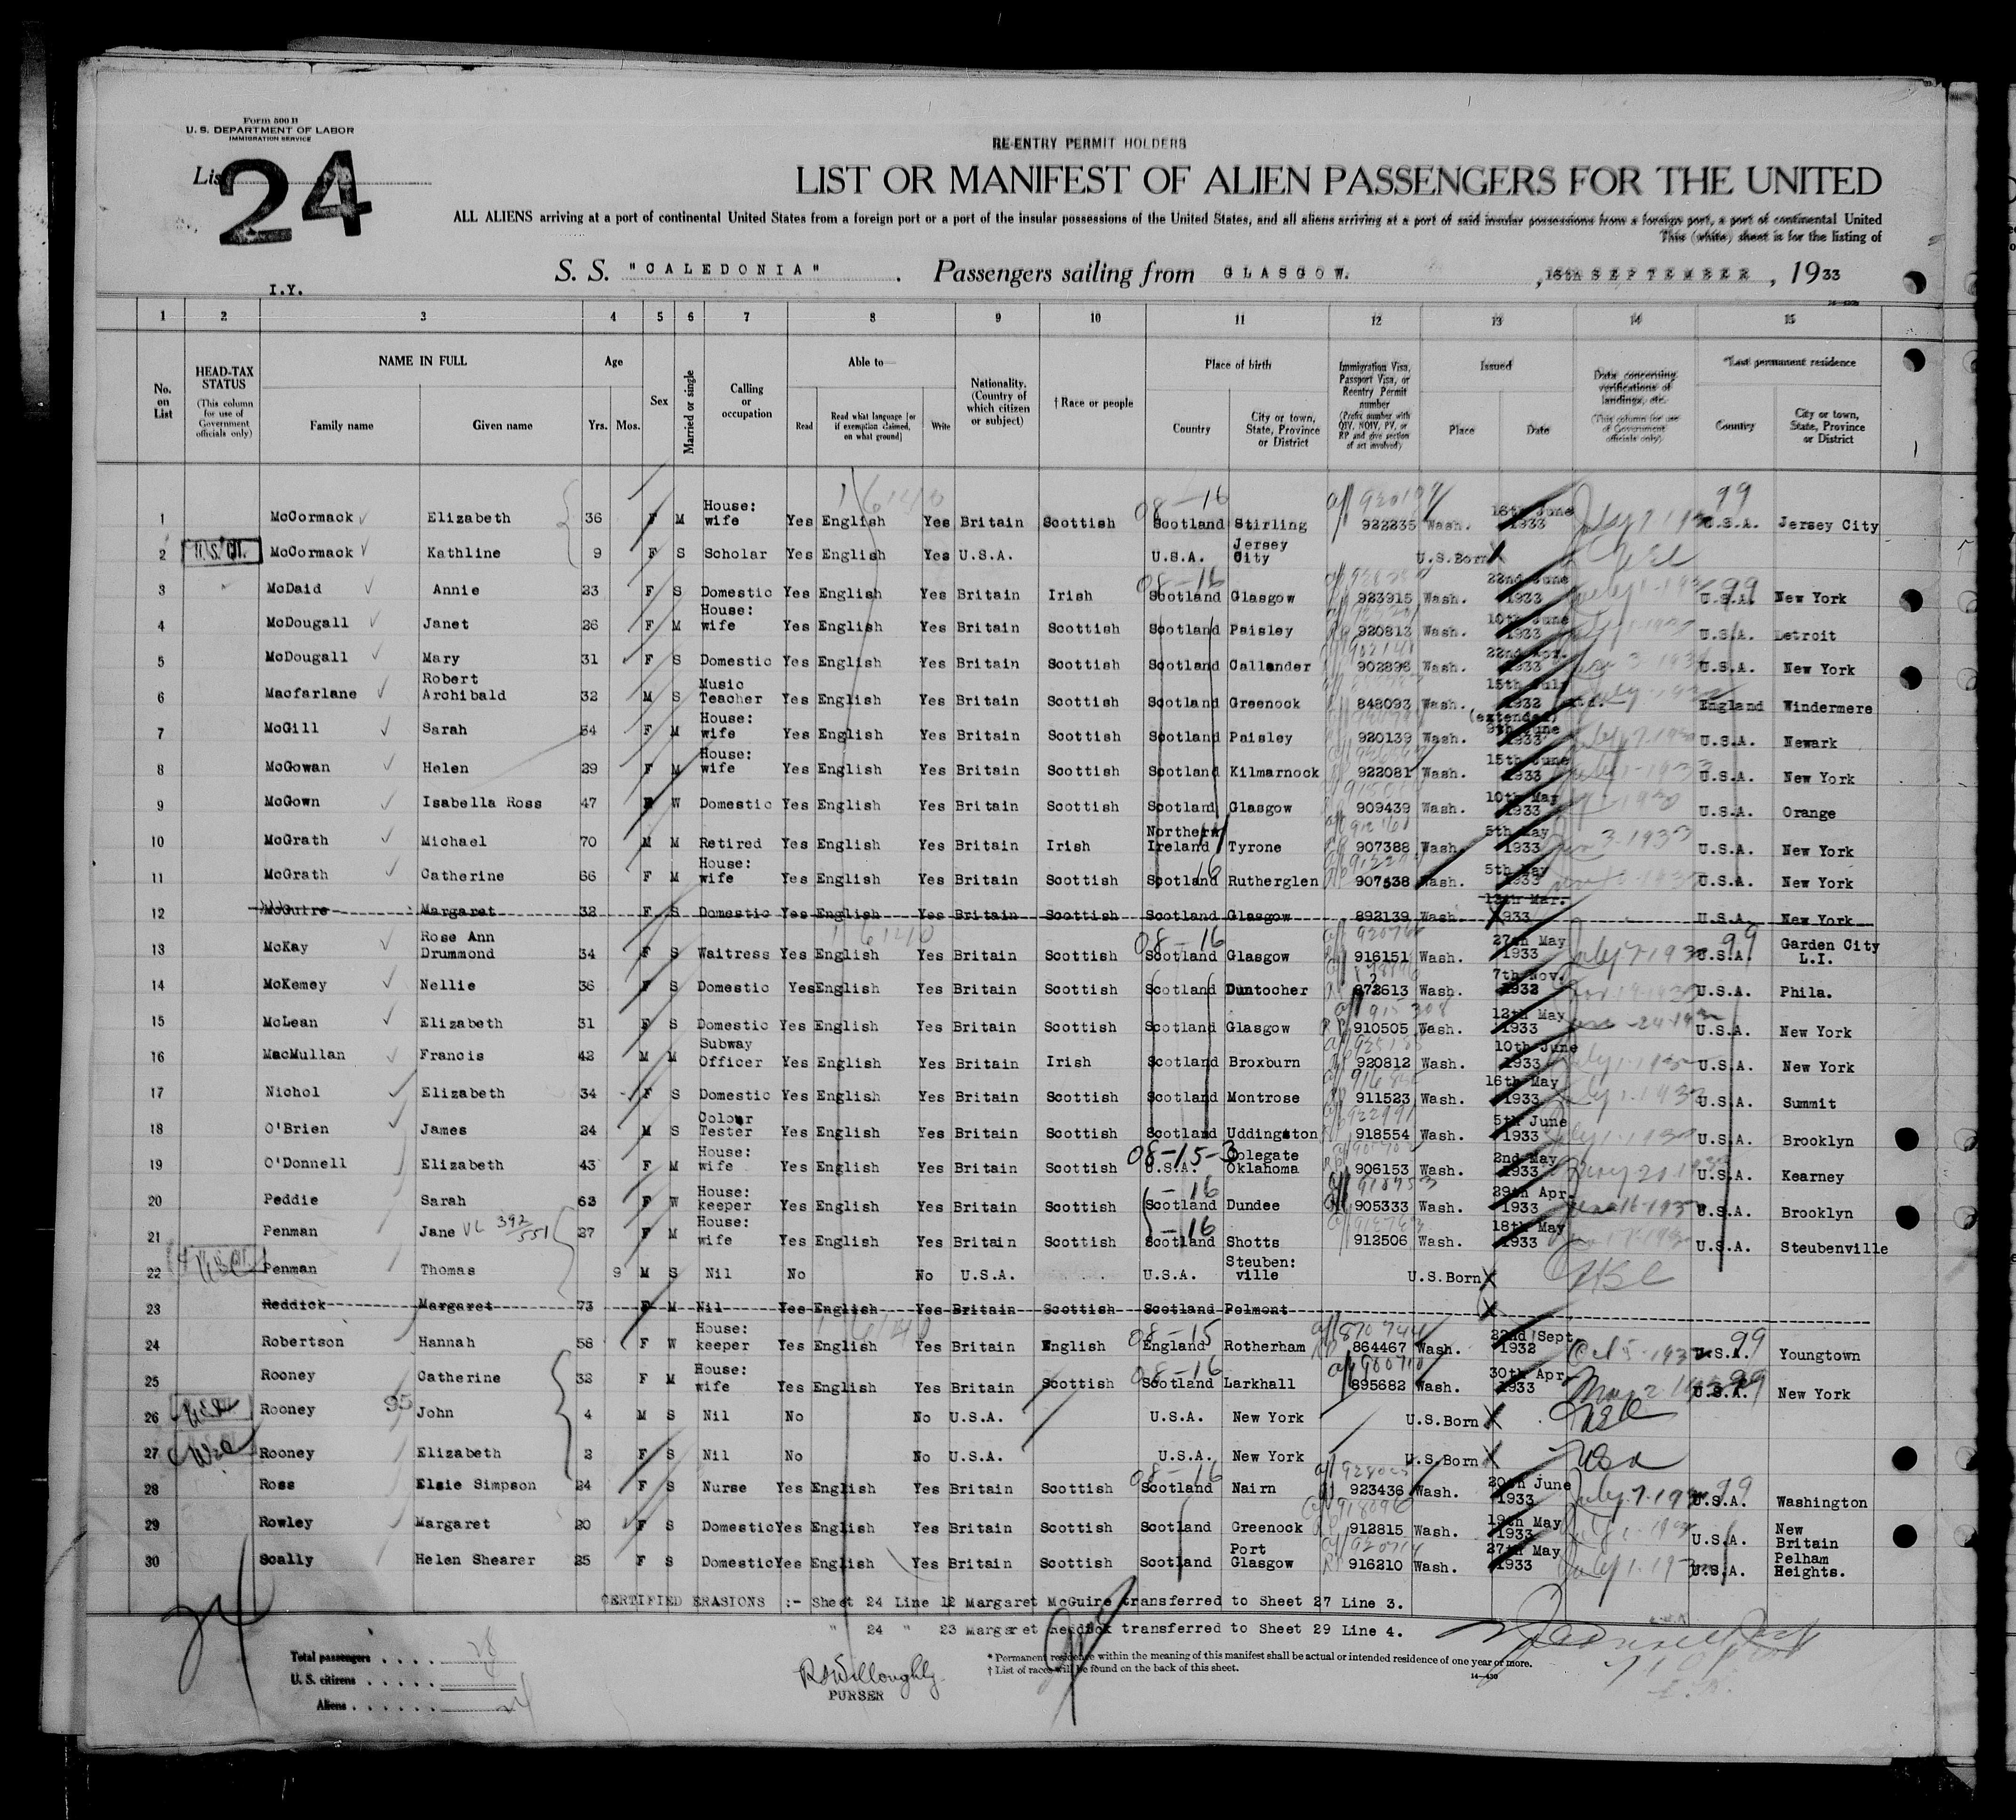 Form 500 B
U. S. DEPARTMENT OF LABOR
IMMIGRATION SERVICE
List 24
RE-ENTRY PERMIT HOLDERS
LIST OR MANIFEST OF ALIEN PASSENGERS FOR THE UNITED
ALL ALIENS arriving at a port of continental United States from a foreign port or a port of the insular possessions of the United States, and all aliens arriving at a port of said insular possessions from a foreign port, a port of continental United
This (white) sheet is for the listing of
S. S. "CALEDONIA" . Passengers sailing from GLASGOW. , 16th SEPTEMBER , 1933
I.Y.
1 2 3 4 5 6 7 8 9 10 11 12 13 14 15
No. on List
HEAD-TAX STATUS (This column for use of Government officials only)
NAME IN FULL
Family name Given name
Age
Yrs. Mos.
Sex
Married or single
Calling or occupation
Able to—
Read Read what language [or if exemption claimed, on what ground] Write
Nationality. (Country of which citizen or subject)
† Race or people
Place of birth
Country City or town, State, Province or District
Immigration Visa, Passport Visa, or Reentry Permit number (Prefix number with QIV, NQIV, PV, or RP and give section of act involved)
Issued
Place Date
Data concerning verifications of landings, etc. (This column for use of Government officials only)
*Last permanent residence
Country City or town, State, Province or District
1 McCormack Elizabeth 36 F M House: wife Yes English Yes Britain Scottish Scotland Stirling 922235 Wash. 16th June 1933 U.S.A. Jersey City
2 U.S. Cit. McCormack Kathline 9 F S Scholar Yes English Yes U.S.A. U.S.A. Jersey City U.S.Born
3 McDaid Annie 23 F S Domestic Yes English Yes Britain Irish Scotland Glasgow 923915 Wash. 22nd June 1933 U.S.A. New York
4 McDougall Janet 26 F M House: wife Yes English Yes Britain Scottish Scotland Paisley 920813 Wash. 10th June 1933 U.S.A. Detroit
5 McDougall Mary 31 F S Domestic Yes English Yes Britain Scottish Scotland Callander 902896 Wash. 22nd Apr. 1933 U.S.A. New York
6 Macfarlane Robert Archibald 32 M S Music Teacher Yes English Yes Britain Scottish Scotland Greenock 848093 Wash. 15th July 1932 (extended) England Windermere
7 McGill Sarah 54 F M House: wife Yes English Yes Britain Scottish Scotland Paisley 920139 Wash. 9th June 1933 U.S.A. Newark
8 McGowan Helen 29 F M House: wife Yes English Yes Britain Scottish Scotland Kilmarnock 922081 Wash. 15th June 1933 U.S.A. New York
9 McGown Isabella Ross 47 F W Domestic Yes English Yes Britain Scottish Scotland Glasgow 909439 Wash. 10th May 1933 U.S.A. Orange
10 McGrath Michael 70 M M Retired Yes English Yes Britain Irish Northern Ireland Tyrone 907388 Wash. 5th May 1933 U.S.A. New York
11 McGrath Catherine 66 F M House: wife Yes English Yes Britain Scottish Scotland Rutherglen 907438 Wash. 5th May 1933 U.S.A. New York
12 McGuire Margaret 32 F S Domestic Yes English Yes Britain Scottish Scotland Glasgow 892139 Wash. 13th Mar. 1933 U.S.A. New York
13 McKay Rose Ann Drummond 34 F S Waitress Yes English Yes Britain Scottish Scotland Glasgow 916151 Wash. 27th May 1933 U.S.A. Garden City L.I.
14 McKemey Nellie 36 F S Domestic Yes English Yes Britain Scottish Scotland Duntocher 872613 Wash. 7th Nov. 1932 U.S.A. Phila.
15 McLean Elizabeth 31 F S Domestic Yes English Yes Britain Scottish Scotland Glasgow 910505 Wash. 12th May 1933 U.S.A. New York
16 MacMullan Francis 42 M M Subway Officer Yes English Yes Britain Irish Scotland Broxburn 920812 Wash. 10th June 1933 U.S.A. New York
17 Nichol Elizabeth 34 F S Domestic Yes English Yes Britain Scottish Scotland Montrose 911523 Wash. 16th May 1933 U.S.A. Summit
18 O'Brien James 24 M S Colour Tester Yes English Yes Britain Scottish Scotland Uddingston 918554 Wash. 5th June 1933 U.S.A. Brooklyn
19 O'Donnell Elizabeth 43 F M House: wife Yes English Yes Britain Scottish 08-15-3 U.S.A. Colegate Oklahoma 906153 Wash. 2nd May 1933 U.S.A. Kearney
20 Peddie Sarah 63 F W House: keeper Yes English Yes Britain Scottish Scotland Dundee 905333 Wash. 29th Apr. 1933 U.S.A. Brooklyn
21 Penman Jane 27 F M House: wife Yes English Yes Britain Scottish Scotland Shotts 912506 Wash. 18th May 1933 U.S.A. Steubenville
22 Penman Thomas 9 M S Nil No No U.S.A. U.S.A. Steuben: ville U.S.Born
23 Reddick Margaret 73 F M Nil Yes English Yes Britain Scottish Scotland Polmont
24 Robertson Hannah 58 F W House: keeper Yes English Yes Britain English 08-15 England Rotherham 864467 Wash. 22nd Sept. 1932 U.S.A. Youngtown
25 Rooney Catherine 32 F M House: wife Yes English Yes Britain Scottish 08-16 Scotland Larkhall 895682 Wash. 30th Apr. 1933 U.S.A. New York
26 Rooney John 4 M S Nil No No U.S.A. U.S.A. New York U.S.Born
27 Rooney Elizabeth 2 F S Nil No No U.S.A. U.S.A. New York U.S.Born
28 Ross Elsie Simpson 24 F S Nurse Yes English Yes Britain Scottish 08-16 Scotland Nairn 923436 Wash. 20th June 1933 U.S.A. Washington
29 Rowley Margaret 30 F S Domestic Yes English Yes Britain Scottish Scotland Greenock 912815 Wash. 19th May 1933 U.S.A. New Britain
30 Scally Helen Shearer 25 F S Domestic Yes English Yes Britain Scottish Scotland Port Glasgow 916210 Wash. 27th May 1933 U.S.A. Pelham Heights.
CERTIFIED ERASIONS :- Sheet 24 Line 12 Margaret McGuire transferred to Sheet 27 Line 3.
" 24 " 23 Margaret Reddick transferred to Sheet 29 Line 4.
24
Total passengers . . . . 28
U. S. citizens . . . . .
Aliens . . . . . . 24
R S Willoughby
PURSER
* Permanent residence within the meaning of this manifest shall be actual or intended residence of one year or more.
† List of races will be found on the back of this sheet.
14—430